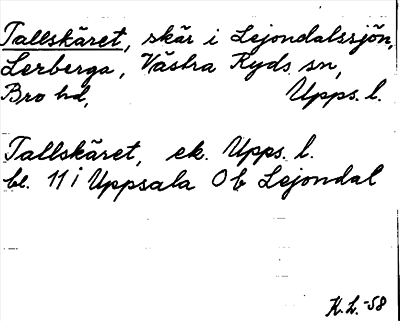 Tallskäret, skär i Lejondalssjön,
Lerberga, Västra Ryds sn,
Bro hd, Upps. l.
Tallskäret, ek. Upps. l.
bl. 11 i Uppsala Ob Lejondal
K.L. -58